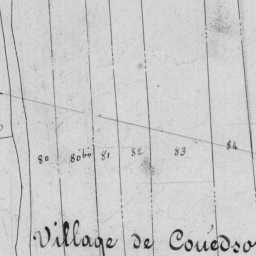 80 80bis 81 82 83 84
Village de Couédso